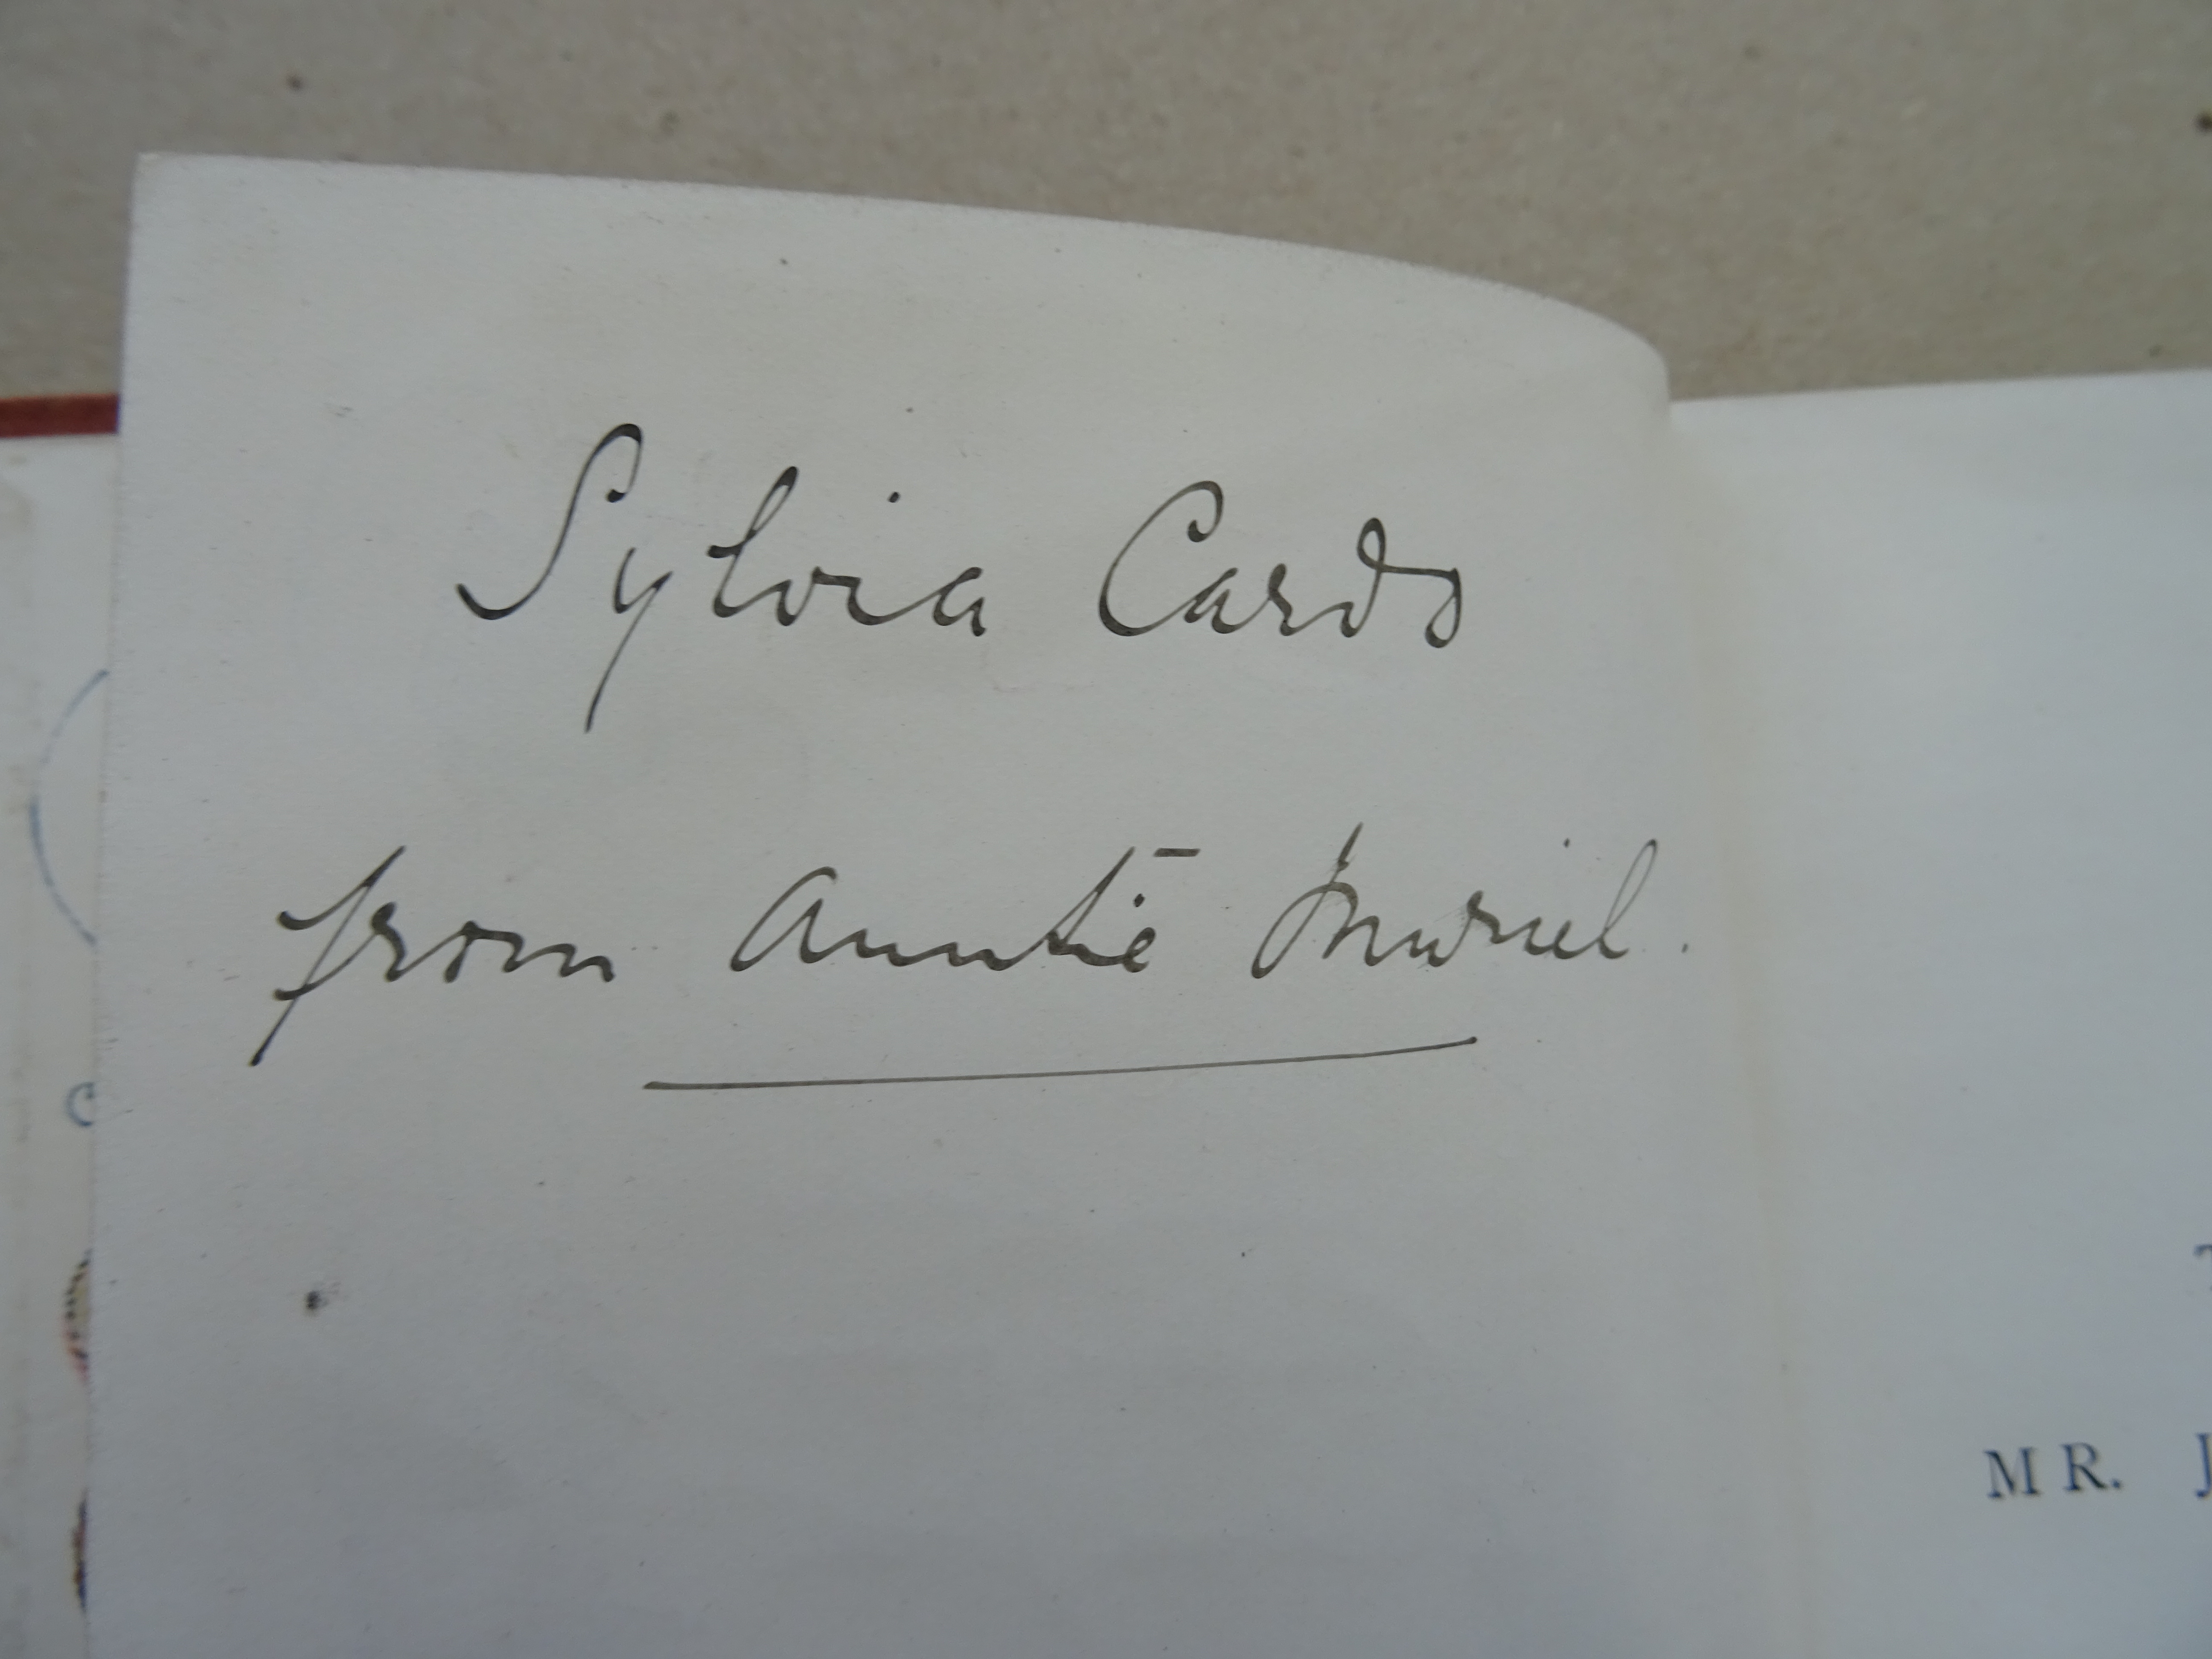 Sylvia Cards
from Auntie Muriel.
MR. J